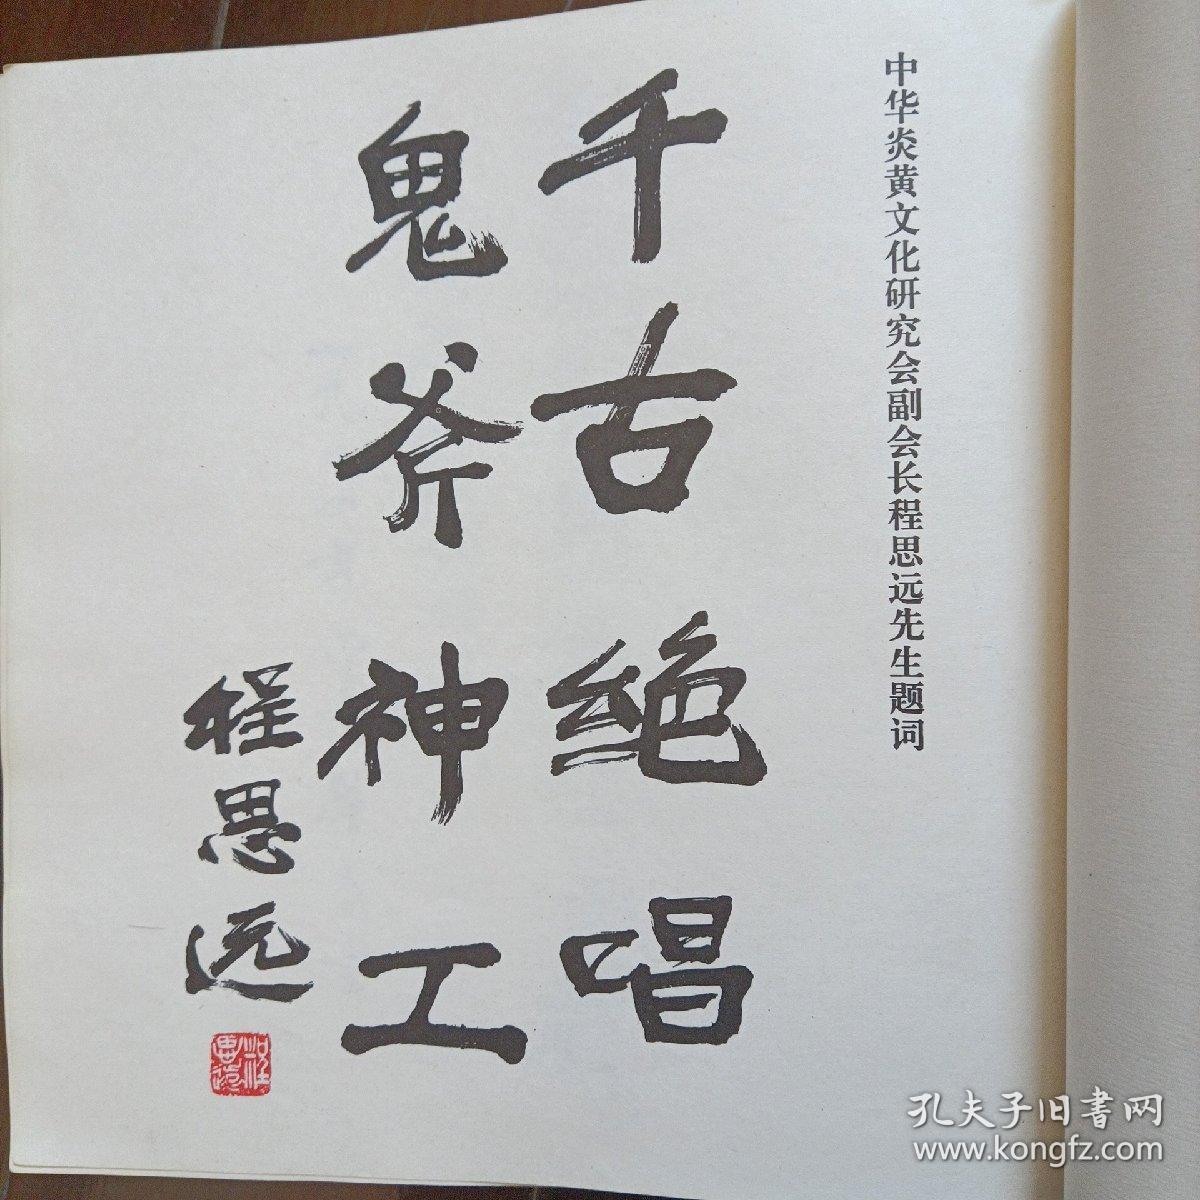 中华炎黄文化研究会副会长程思远先生题词
千古绝唱
鬼斧神工
程思远
孔夫子旧书网
www.kongfz.com